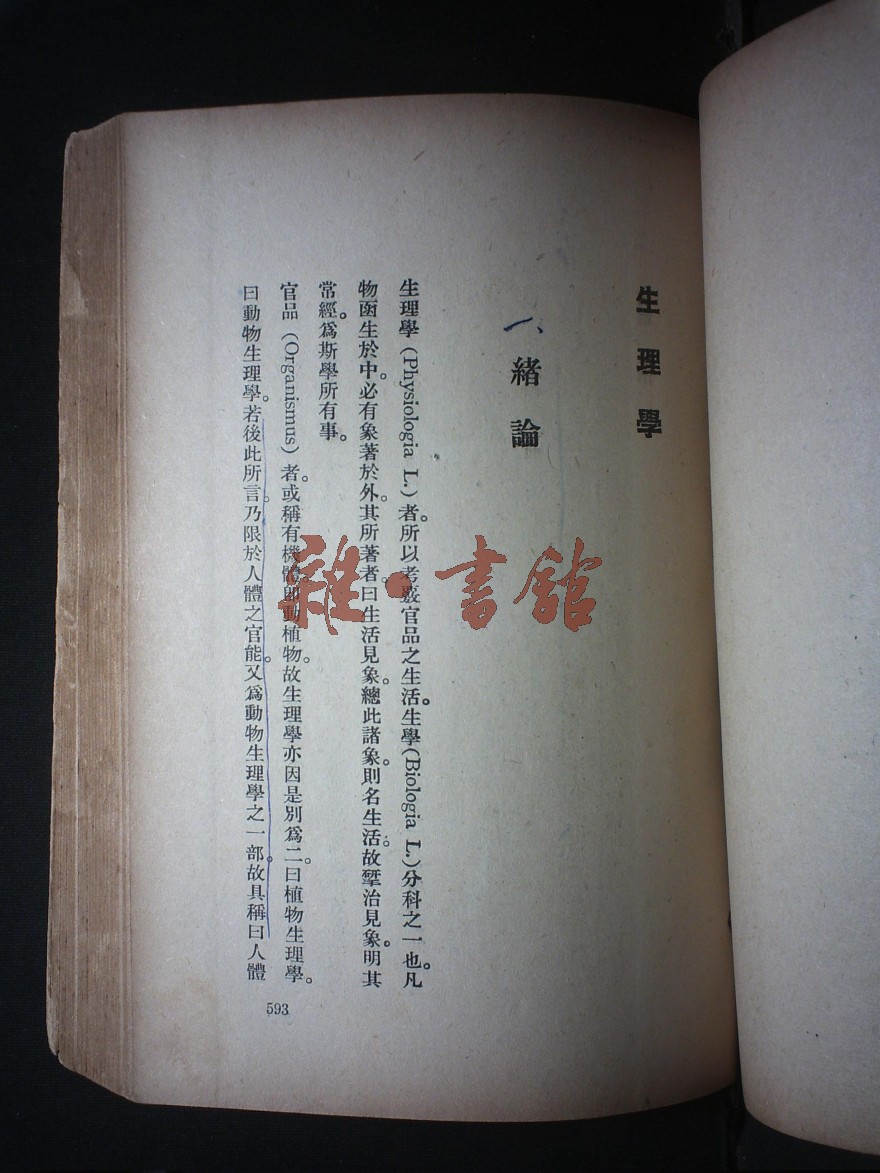 生理學
一、緒論
生理學(Physiologia L.)者。所以考覈官品之生活。生學(Biologia L.)分科之一也。凡
物函生於中。必有象著於外。其所著者。曰生活見象。總此諸象。則名生活。故揅治見象。明其
常經。爲斯學所有事。
官品(Organismus)者。或稱有機體。卽動植物。故生理學亦因是別爲二。曰植物生理學。
曰動物生理學。若後此所言。乃限於人體之官能。又爲動物生理學之一部。故具稱曰人體
593
雜·書館